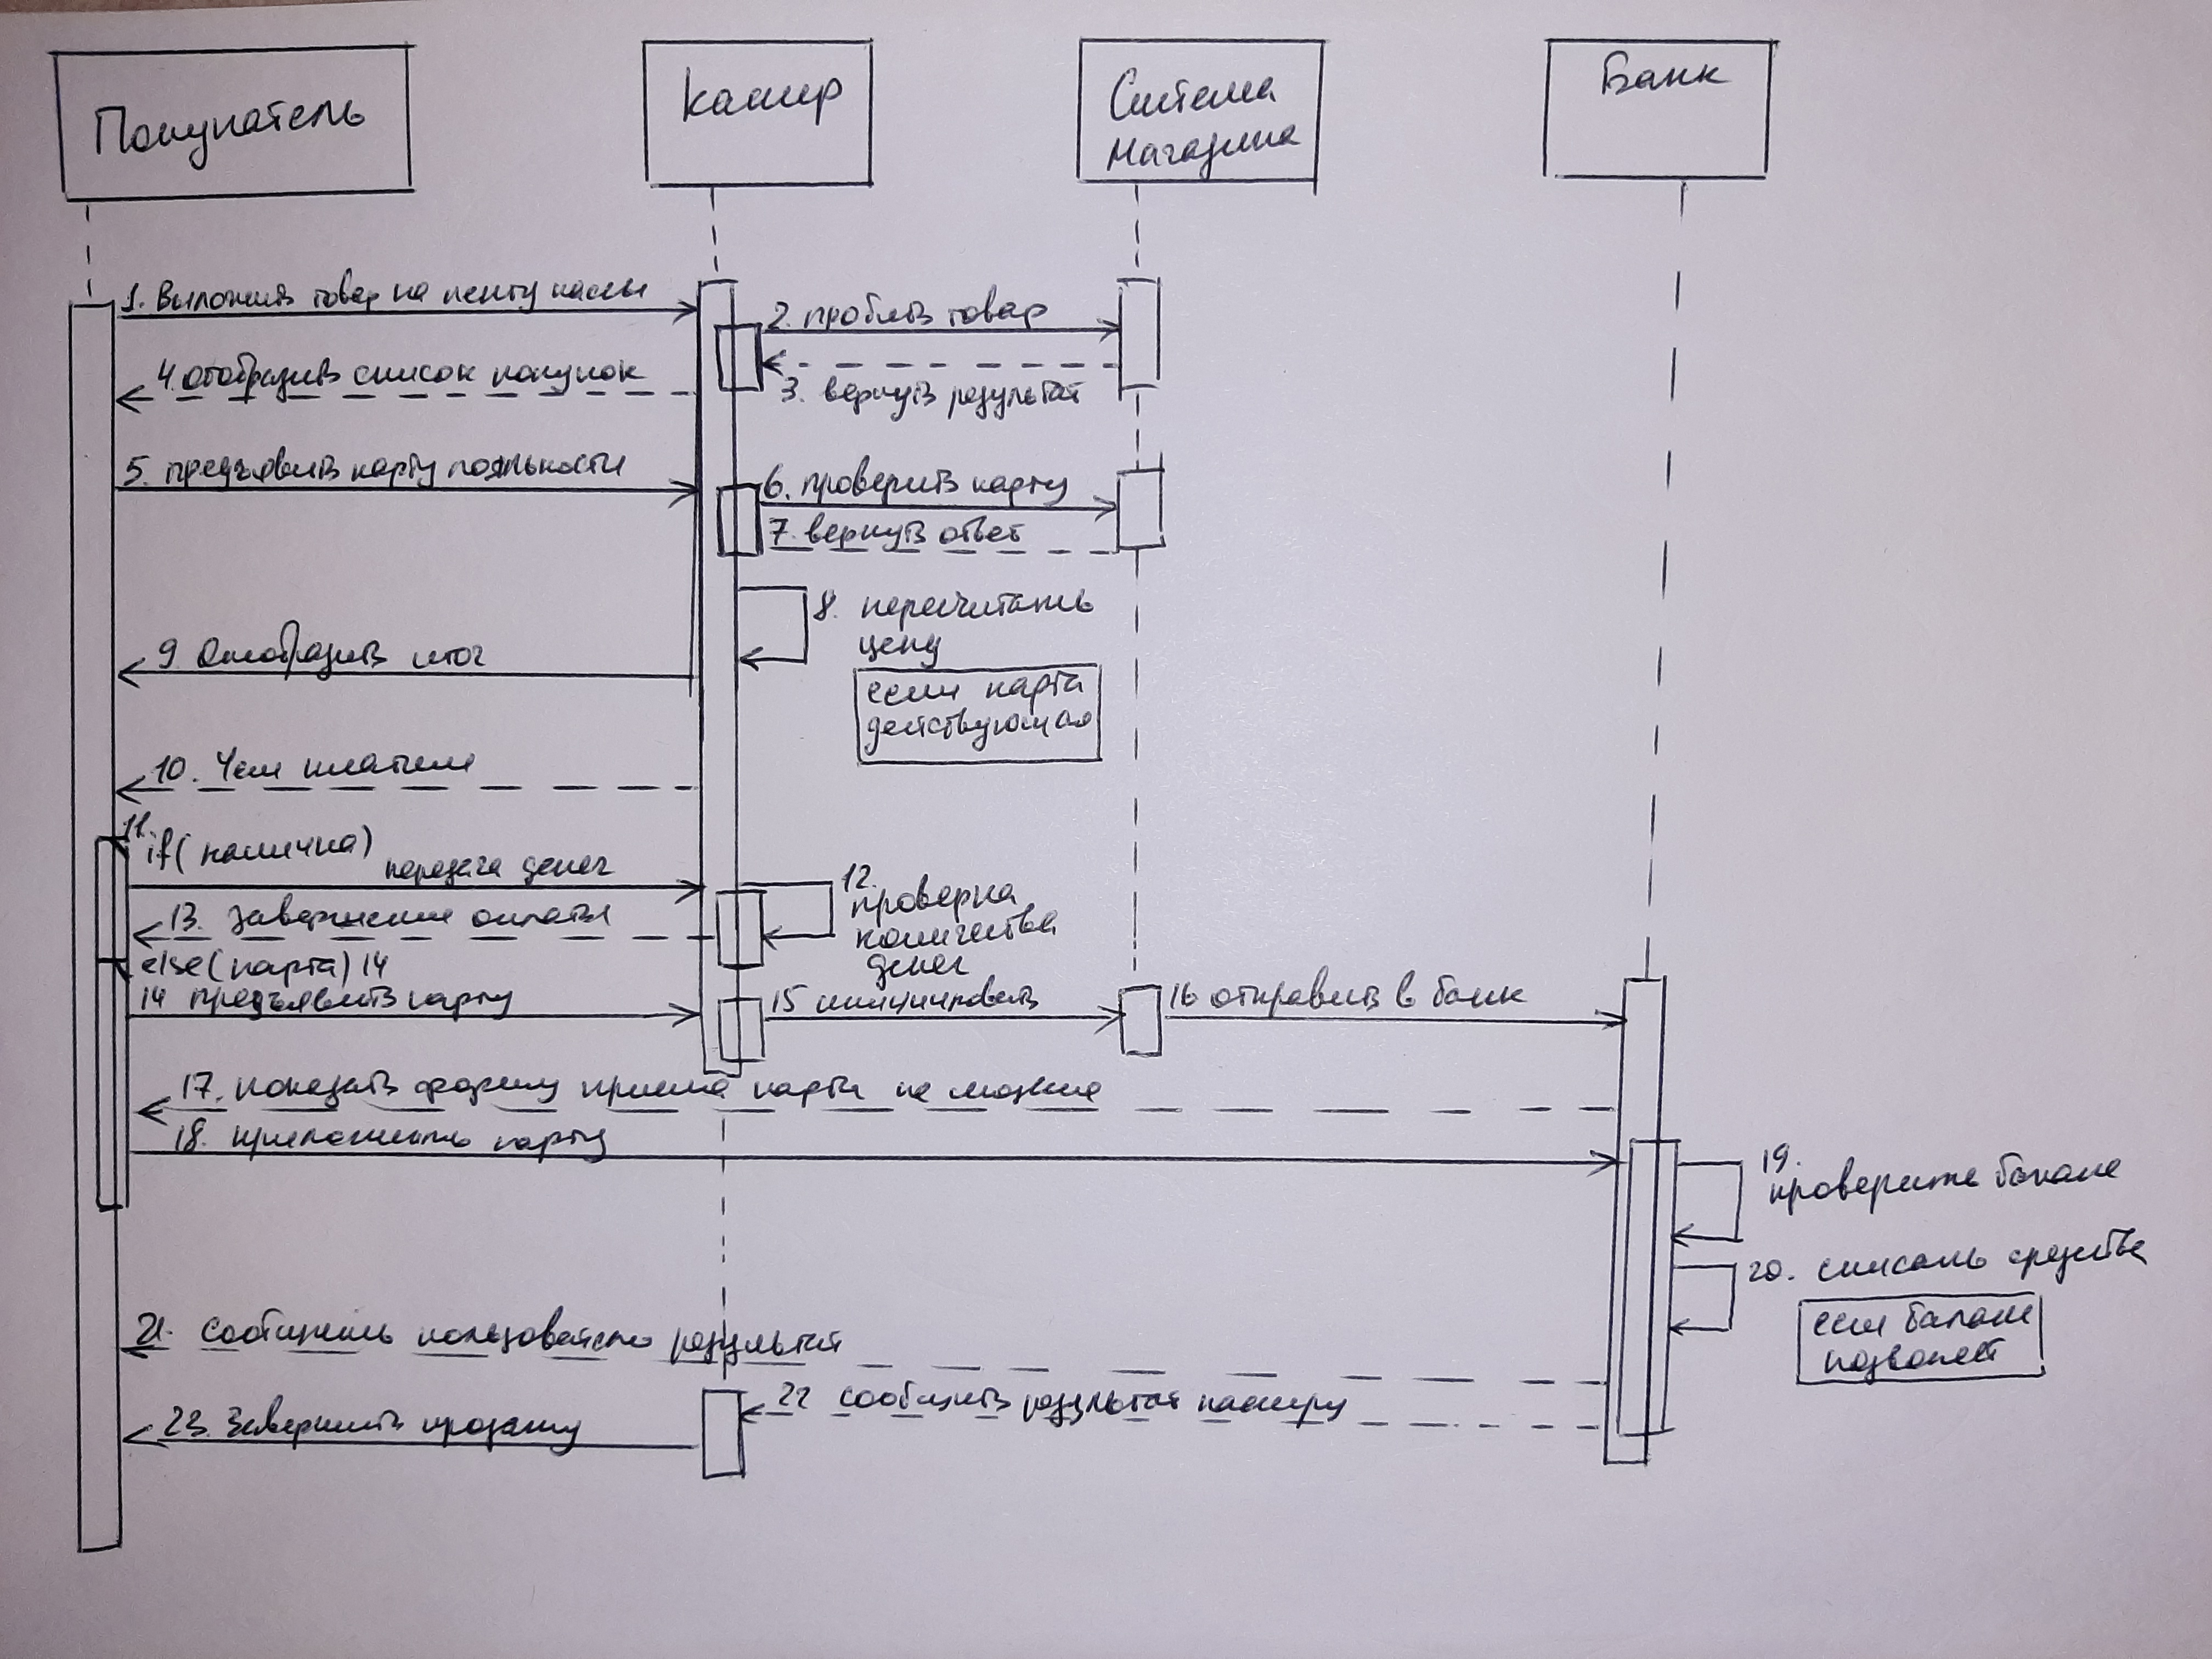 Покупатель
Кассир
Система
магазина
Банк
1. Выложить товар на ленту кассы
2. пробить товар
3. вернуть результат
4. отобразить список покупок
5. предъявить карту лояльности
6. проверить карту
7. вернуть ответ
8. пересчитать
цену
если карта
действующая
9 Отобразить итог
10. Чем платим
11.
if(наличка)
передача денег
12.
проверка
количества
денег
13. Завершение оплаты
else(карта) 14
14 предъявить карту
15 инициировать
16 отправить в банк
17. показать форму приема карты на
18. приложить карту
19.
проверить баланс
20. списать средства
если баланс
позволяет
21. Сообщить пользователю результат
22 сообщить результат кассиру
23. Завершить продажу